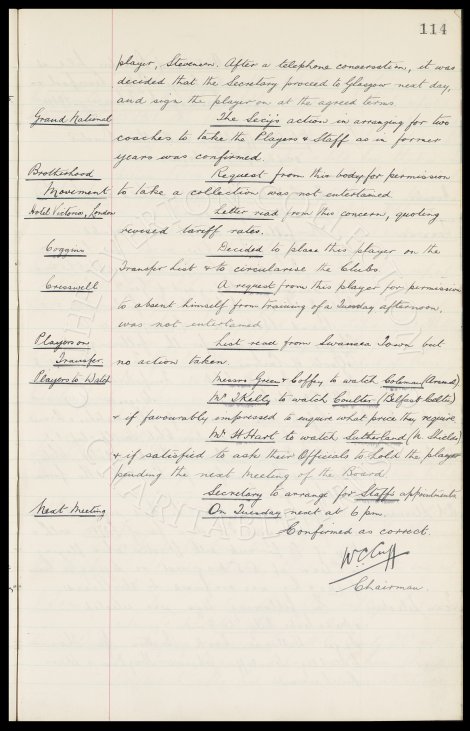 114
player, Stevenson. After a telephone conversation, it was
decided that the Secretary proceed to Glasgow next day,
and sign the player on at the agreed terms.
Grand National The Secy's action in arranging for two
coaches to take the Players & Staff as in former
years was confirmed
Brotherhood Request from this body for permission
Movement to take a collection was not entertained
Hotel Victoria, London Letter read from this concern, quoting
revised tariff rates.
Coggins Decided to place this player on the
Transfer List & to circularise the Clubs.
Cresswell A request from this player for permission
to absent himself from training of a Tuesday afternoon,
was not entertained
Players on List read from Swansea Town but
Transfer. no action taken.
Players to Watch Messrs Green & Coffey to watch Coleman (Arsenal)
Mr Kelly to watch Coulter (Belfast Celtic)
& if favourably impressed to enquire what price they require
Mr H Hart to watch Sutherland (N. Shields)
& if satisfied to ask their Officials to hold the player
pending the next Meeting of the Board
Secretary to arrange for Staff's appointments
Next Meeting On Tuesday next at 6 pm.
Confirmed as correct
W C Cuff
Chairman.